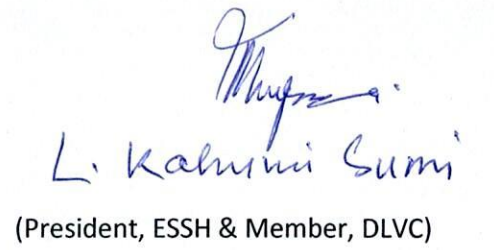 L. Kahumi Sumi
(President, ESSH & Member, DLVC)